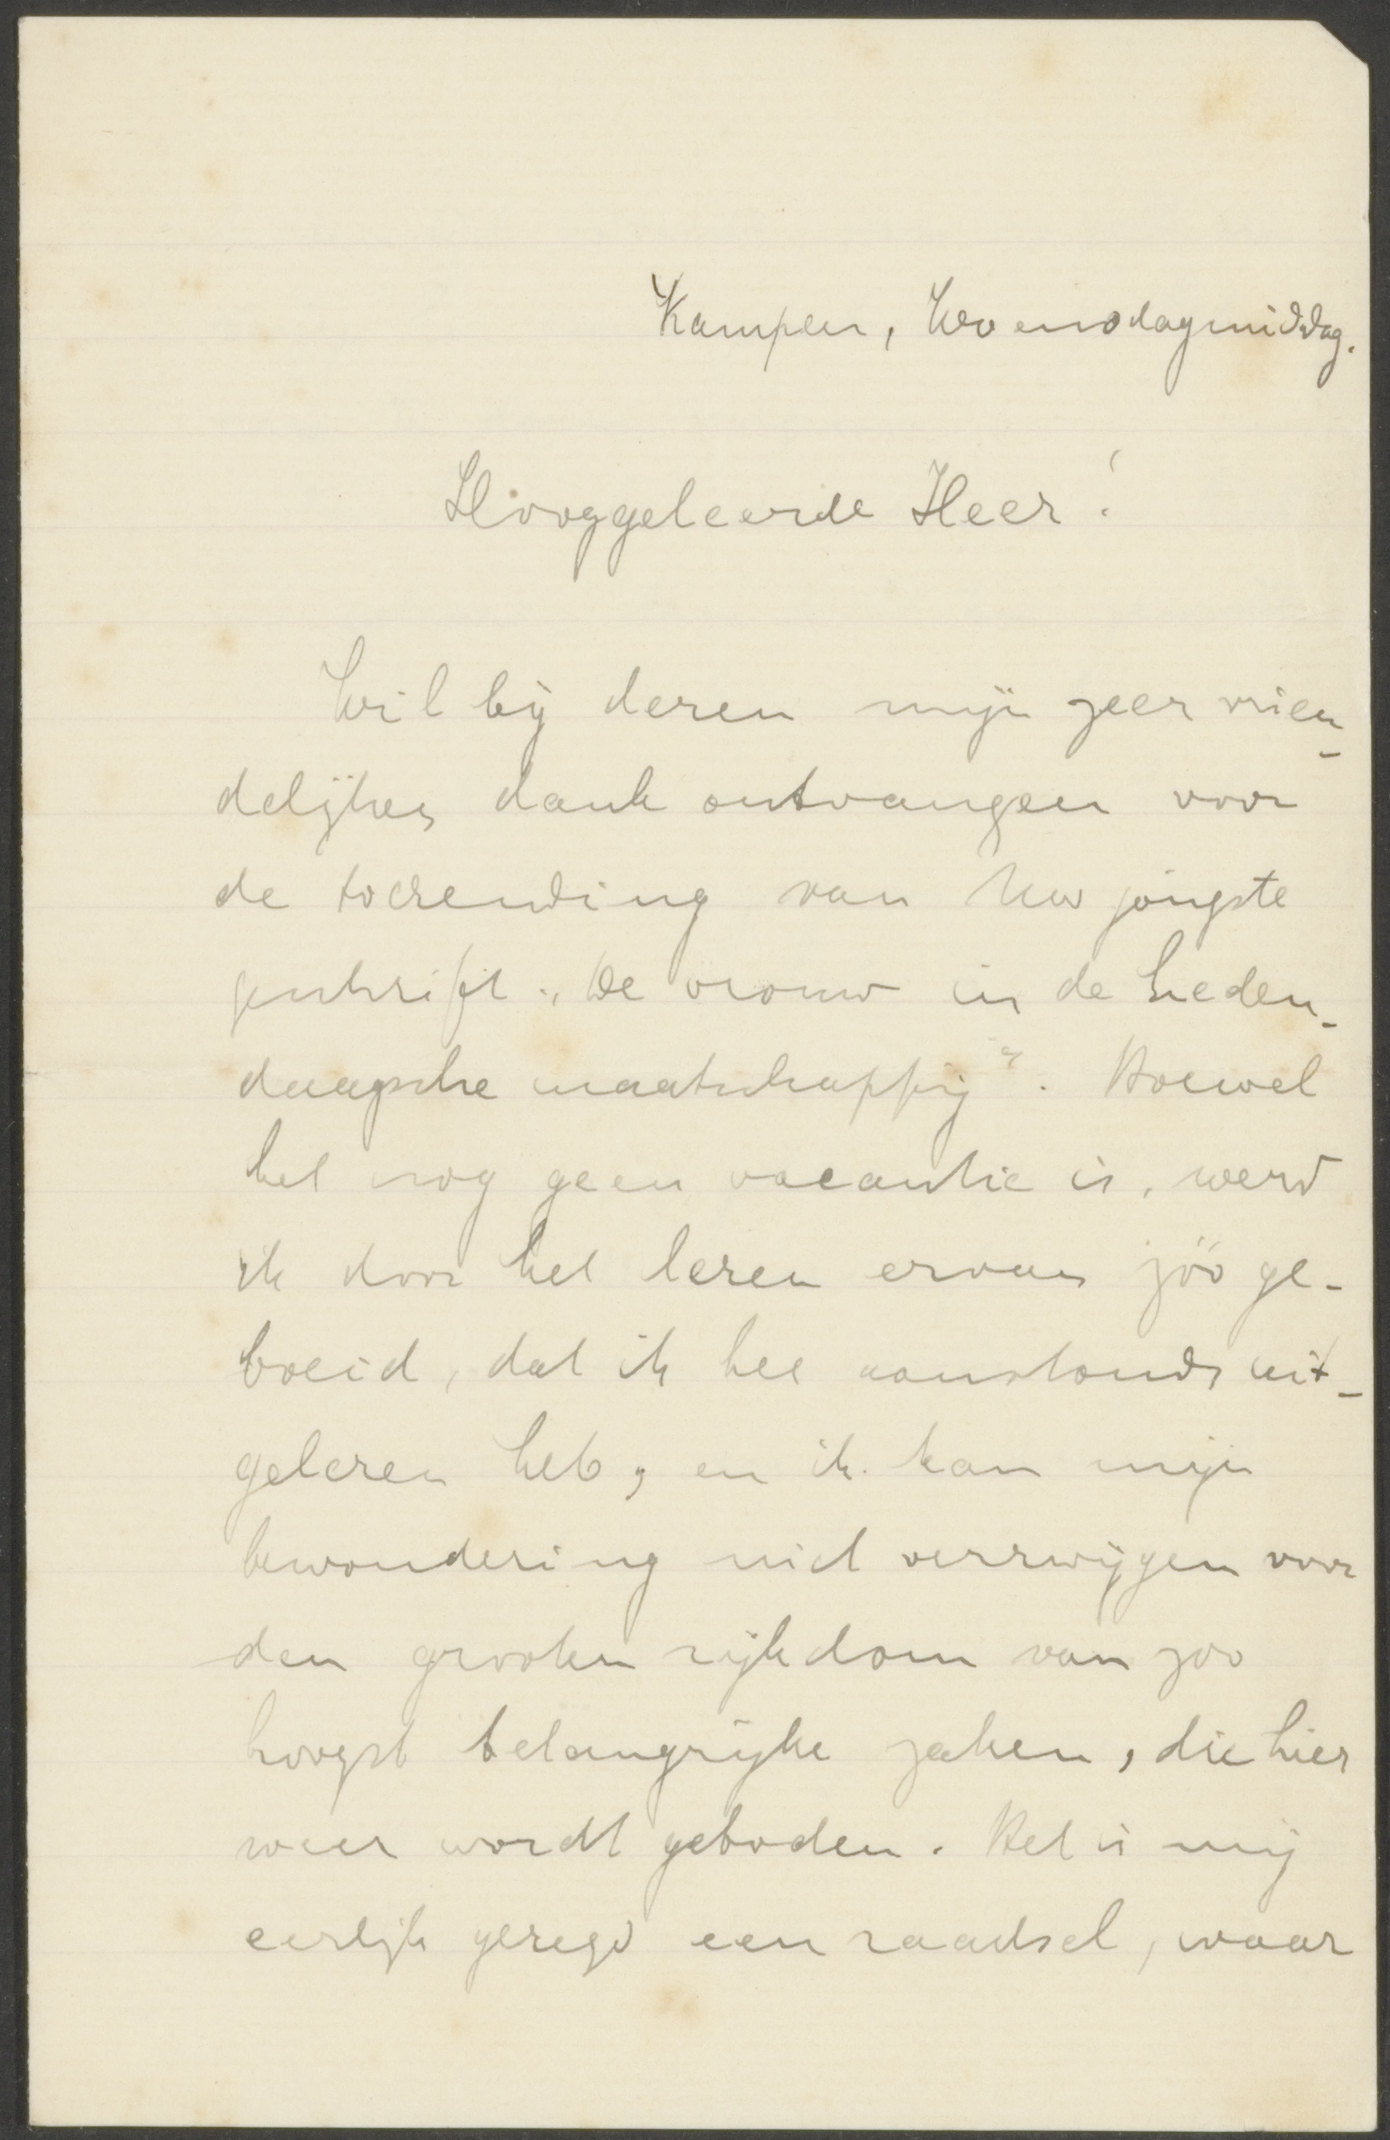 Kampen, Woensdagmiddag.
Hooggeleerde Heer!
Wil bij dezen mijn zeer vrien-
delijken dank ontvangen voor
de toezending van Uw jongste
geschrift „De vrouw in de heden-
daagsche maatschappij". Hoewel
het nog geen vacantie is, werd
ik door het lezen ervan zóó ge-
boeid, dat ik het aanstonds uit-
gelezen heb, en ik kan mijn
bewondering niet verzwijgen voor
den grooten rijkdom van zoo
hoogst belangrijke zaken, die hier
weer wordt geboden. Het is mij
eerlijk gezegd een raadsel, waar